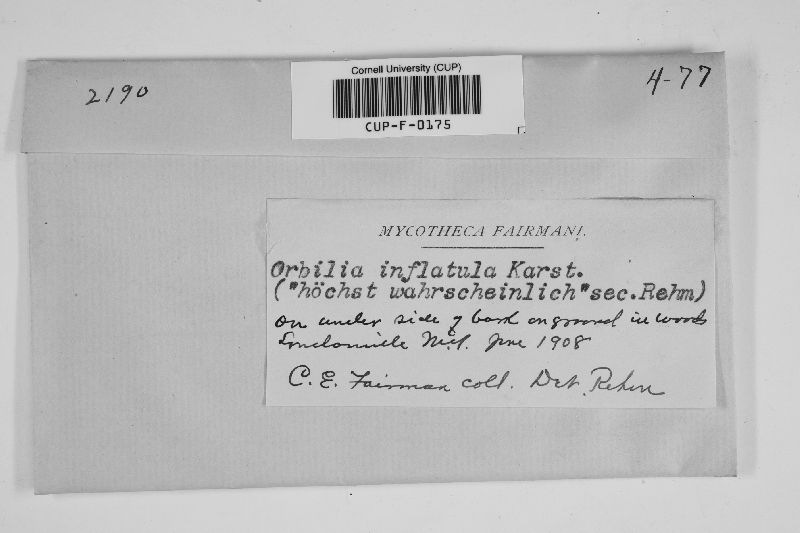 Cornell University (CUP)
CUP-F-0175
2190
4-77
MYCOTHECA FAIRMANI.
Orbilia inflatula Karst.
("höchst wahrscheinlich" sec. Rehm)
on under side of bark on ground in woods
Lyndonville N.Y. June 1908
C. E. Fairman coll. Det. Rehm